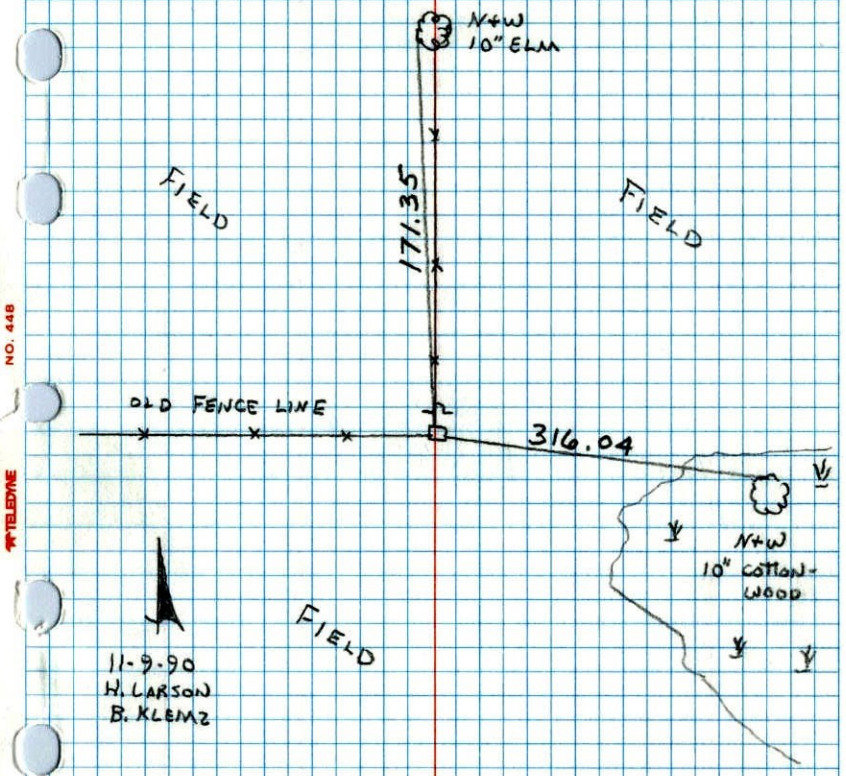 N+W
10" ELM
FIELD
FIELD
171.35
NO. 448
OLD FENCE LINE
316.04
TELEDYNE
N+W
10" COTTON-
WOOD
FIELD
11-9-90
H. LARSON
B. KLEMZ